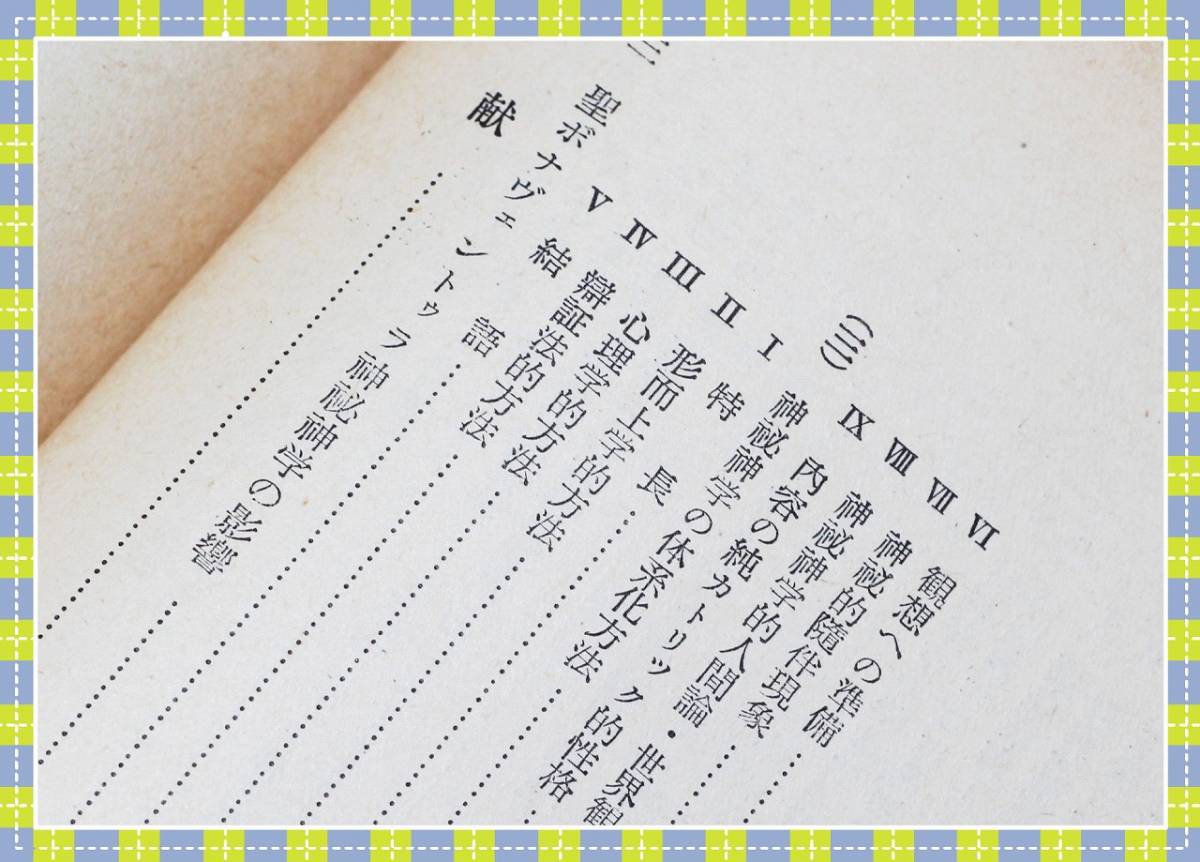 VI 観想への準備
VII 神祕的隨伴現象
VIII 神祕神学的人間論・世界観
IX 内容の純カトリック的性格
(三) 神祕神学の体系化方法
I 特長
II 形而上学的方法
III 心理学的方法
IV 辯証法的方法
V 結語
三 聖ボナヴェントゥラ神祕神学の影響
献